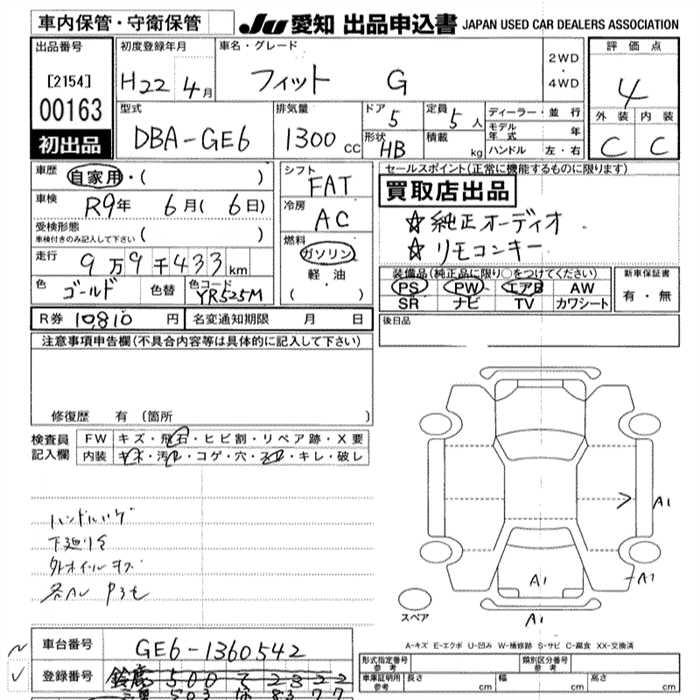 車内保管・守衛保管
JU 愛知 出品申込書 JAPAN USED CAR DEALERS ASSOCIATION
出品番号
[2154]
00163
初出品
初度登録年月
H22 4月
車名・グレード
フィット G
2WD
・
4WD
評価点
4
外装 内装
C C
型式
DBA-GE6
排気量
1300 cc
ドア 5
形状 HB
定員 5人
積載 kg
ディーラー・並行
モデル年式 年
ハンドル 左・右
車歴 自家用・( )
車検 R9年 6月(6日)
受検形態
車検付きのみ記入して下さい ( )
走行 9万9千433km
色 ゴールド 色替 色コード YR525M
シフト
FAT
冷房
AC
燃料
ガソリン
軽油
( )
セールスポイント(正常に機能するものに限ります)
買取店出品
☆純正オーディオ
☆リモコンキー
装備品(純正品に限り○をつけてください)
PS PW エアB AW
SR ナビ TV カワシート
新車保証書
有・無
R券 10,810 円 名変通知期限 月 日
後日品
注意事項申告欄(不具合内容等は具体的に記入して下さい)
修復歴 有(箇所 )
検査員記入欄
FW キズ・飛石・ヒビ割・リペア跡・X要
内装 キズ・汚レ・コゲ・穴・スレ・キレ・破レ
ハンドルハゲ
下廻りサ
外ホイルキズ
A1
A1
A1
A1
スペア
A-キズ E-エクボ U-凹み W-補修跡 S-サビ C-腐食 XX-交換済
車台番号 GE6-1360542
登録番号 鈴鹿 500 て 2322
型式指定番号 参考
類別区分番号 参考
車庫証明用 参考 長さ cm 幅 cm 高さ cm